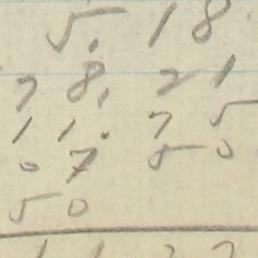 5. 18
78. 21
11. 75
07 50
50